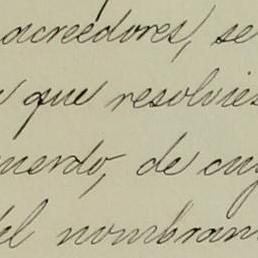 acreedores, se
que resolvies
uerdo, de cuy
el nombran